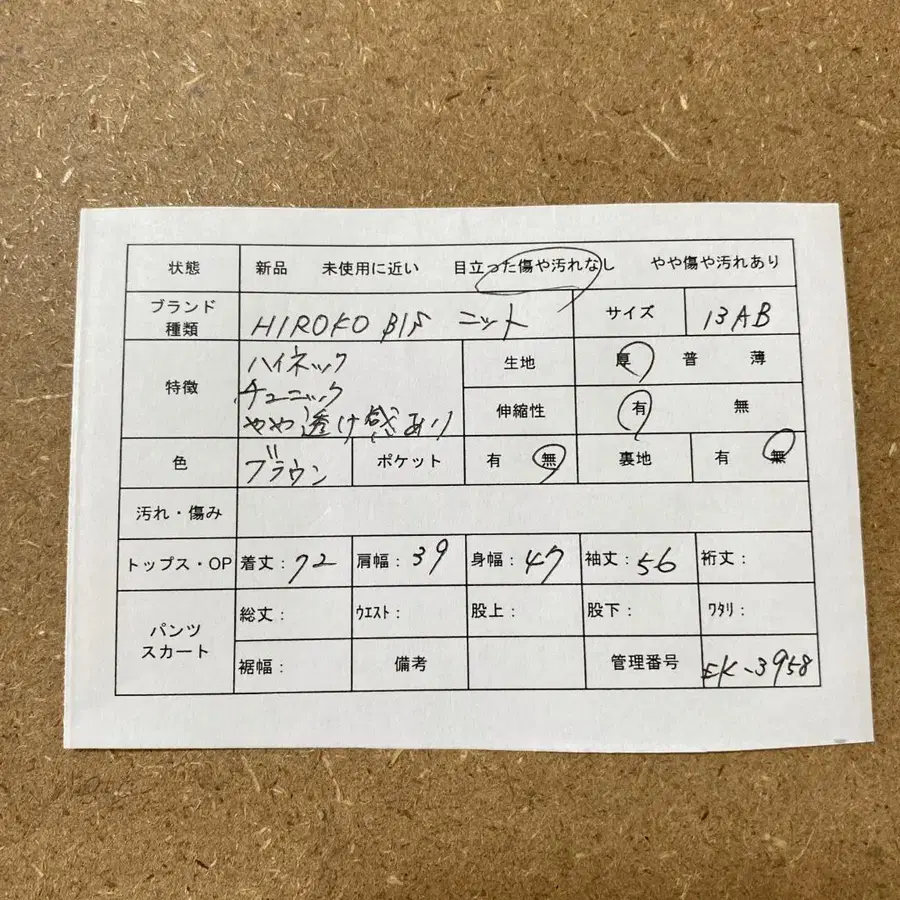 状態 新品 未使用に近い 目立った傷や汚れなし やや傷や汚れあり
ブランド 種類 HIROKO BIS ニット サイズ 13AB
特徴 ハイネック
チュニック
やや透け感あり
生地 厚 普 薄
伸縮性 有 無
色 ブラウン ポケット 有 無 裏地 有 無
汚れ・傷み
トップス・OP 着丈:72 肩幅:39 身幅:47 袖丈:56 裄丈:
パンツ スカート 総丈: ウエスト: 股上: 股下: ワタリ:
裾幅: 備考 管理番号 EK-3958